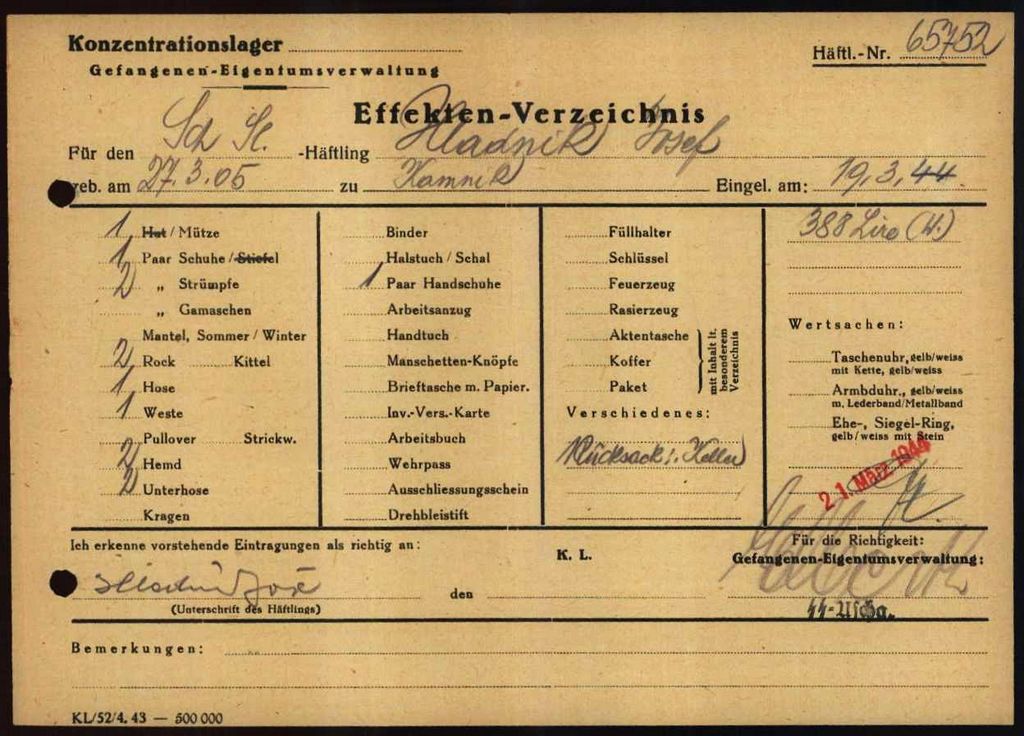 Konzentrationslager
Häftl.-Nr. 65752
Gefangenen-Eigentumsverwaltung
Effekten-Verzeichnis
Für den Sch Sl. -Häftling Hladnik Josef
geb. am 27.3.05 zu Kamnik Eingel. am: 19.3.44
1 Hut / Mütze
1 Paar Schuhe / Stiefel
2 „ Strümpfe
„ Gamaschen
Mantel, Sommer / Winter
2 Rock Kittel
1 Hose
1 Weste
Pullover Strickw.
2 Hemd
2 Unterhose
Kragen
Binder
Halstuch / Schal
1 Paar Handschuhe
Arbeitsanzug
Handtuch
Manschetten-Knöpfe
Brieftasche m. Papier.
Inv.-Vers.-Karte
Arbeitsbuch
Wehrpass
Ausschliessungsschein
Drehbleistift
Füllhalter
Schlüssel
Feuerzeug
Rasierzeug
Aktentasche
Koffer
Paket
mit Inhalt lt.
besonderem
Verzeichnis
Verschiedenes:
Rucksack i. Keller
388 Lire (W.)
Wertsachen:
Taschenuhr, gelb/weiss
mit Kette, gelb/weiss
Armbduhr., gelb/weiss
m. Lederband/Metallband
Ehe-, Siegel-Ring,
gelb/weiss mit Stein
21. März 1944
Ich erkenne vorstehende Eintragungen als richtig an:
K. L.
Für die Richtigkeit:
Gefangenen-Eigentumsverwaltung:
den
(Unterschrift des Häftlings)
SS-Uscha.
Bemerkungen:
KL/52/4. 43 — 500 000